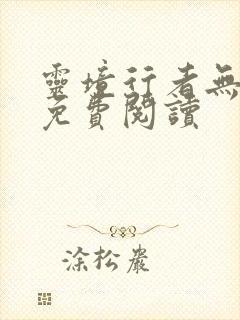 靈境行者無
免費閱讀
涂松巖